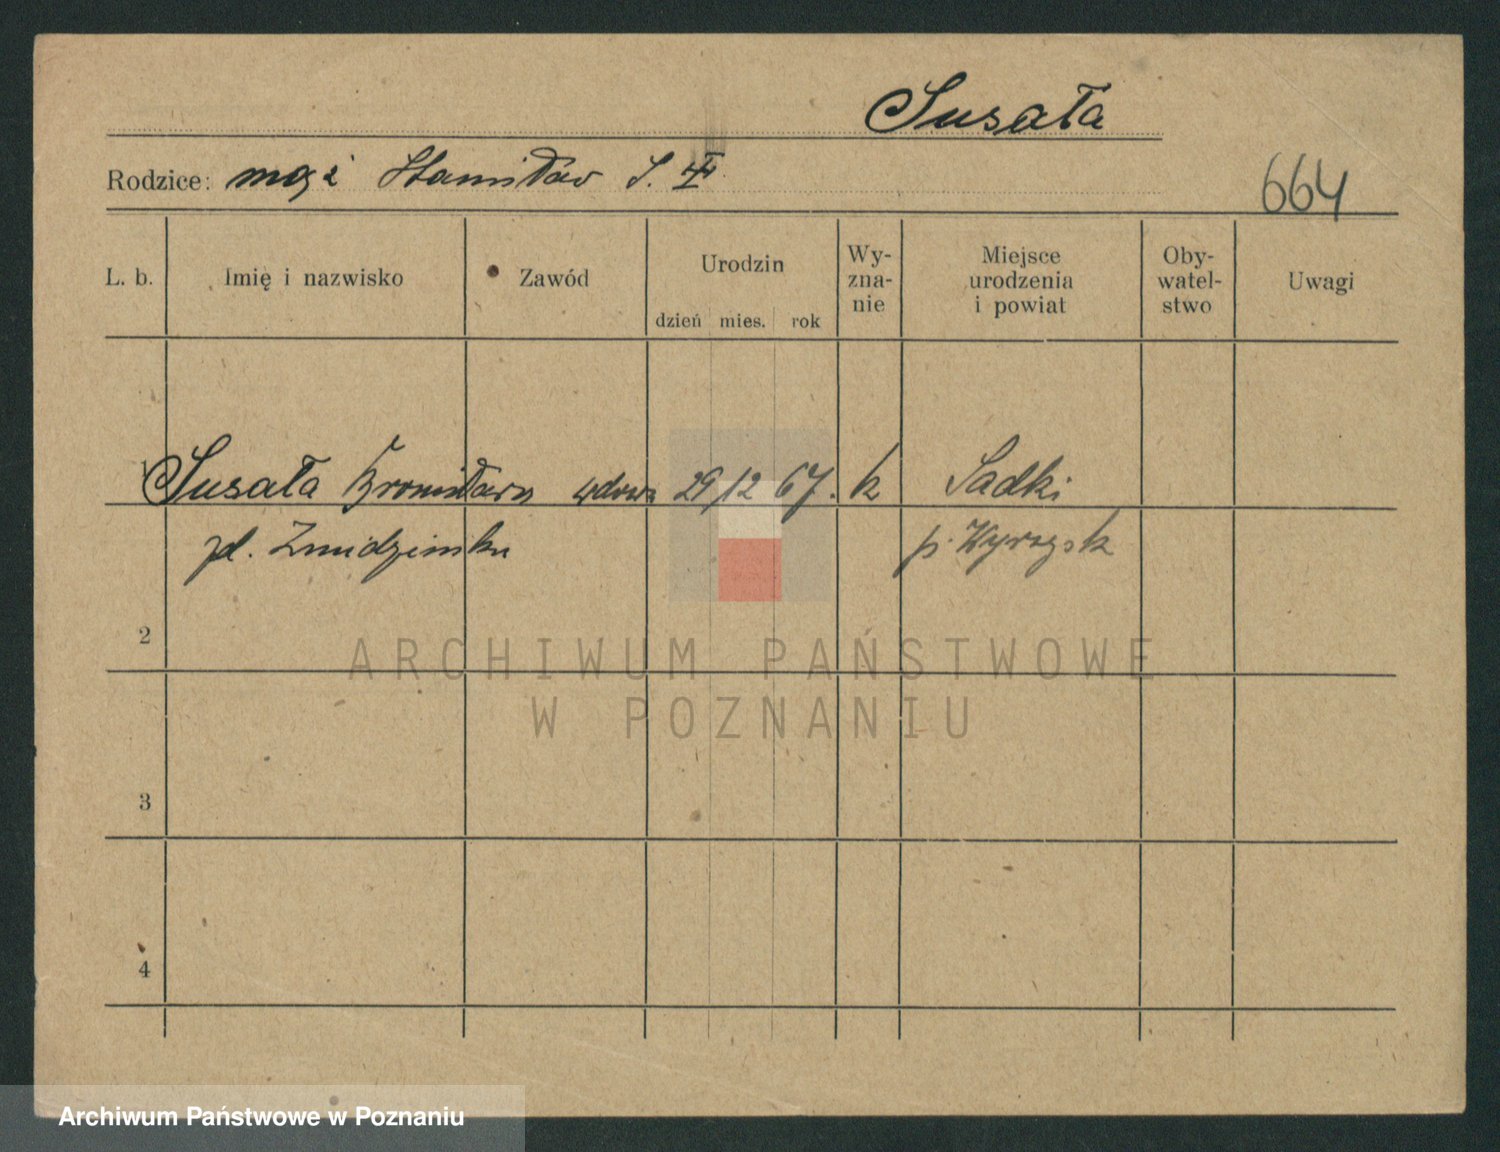 Susała
Rodzice: mąż Stanisław S.
664
L. b. Imię i nazwisko Zawód Urodzin dzień mies. rok Wy-znanie Miejsce urodzenia i powiat Oby-watel-stwo Uwagi
1 Susała Bronisława wdowa 29/12 67. k Sadki
zd. p. Wyrzysk
2
ARCHIWUM PAŃSTWOWE
W POZNANIU
3
4
Archiwum Państwowe w Poznaniu